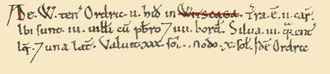 De. W. ten& Ordric .ii. hid̄ in WIRSCAGA. T̄ra.ē.ii. car̄.
Ibi sunt .iii. uill̄i cū p̄bro 7 .iii. bord̄. Silua .iii. q̄rent̄
lḡ. 7 una lat̄. Valuit .xxx. sol̄. modo .x. sol̄. Idē Ordric